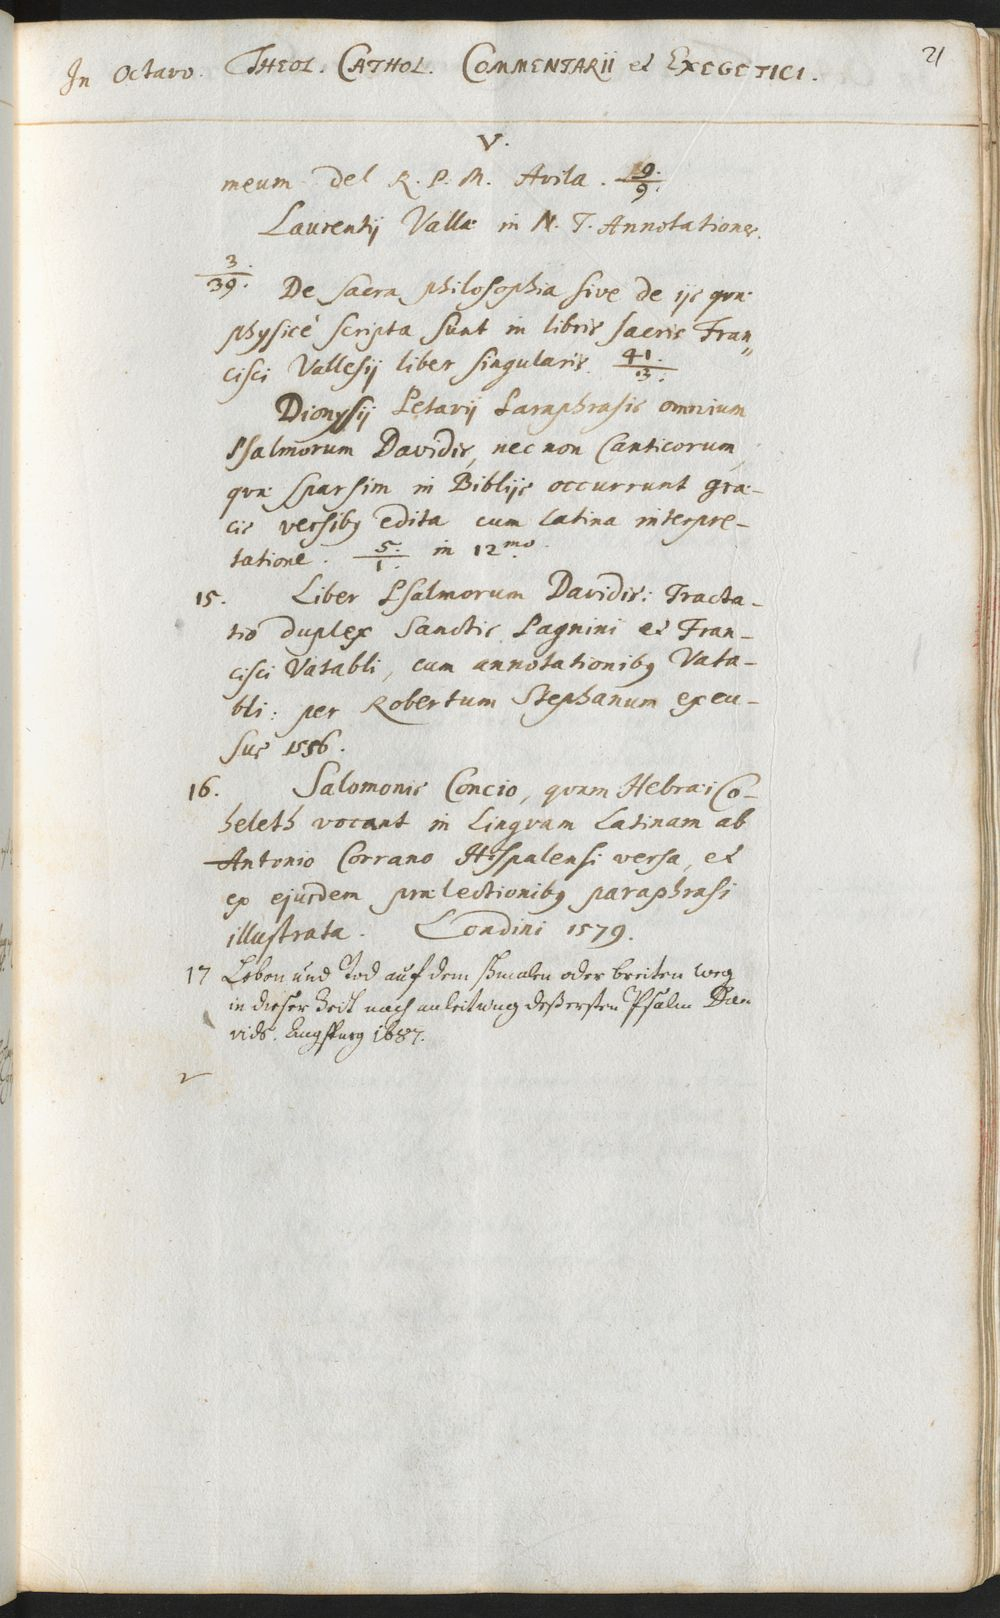 21
In Octavo. THEOL. CATHOL. COMMENTARII et EXEGETICI.
V.
meum del R. P. M. Avila. 9./9.
Laurentij Vallæ in N. T. Annotationes.
3./39. De sacra philosophia sive de ijs quæ
physicè scripta sunt in libris sacris Fran„
cisci Vallesij liber singularis. 41./3.
Dionysij Petavij Paraphrasis omnium
Psalmorum Davidis, nec non Canticorum,
quæ sparsim in Biblijs occurrunt græ-
cis versibq edita cum latina interpre-
tatione. 5./1. in 12mo.
15. Liber Psalmorum Davidis: Tracta-
tio duplex Sanctis Pagnini et Fran-
cisci Vatabli, cum annotationibq Vata-
bli: per Robertum Stephanum excu-
sus 1556.
16. Salomonis Concio, quam Hebræi Co-
heleth vocant in Linguam Latinam ab
Antonio Corrano Hispalensi versa, et
ex ejusdem prælectionibq paraphrasi
illustrata. Londini 1579.
17 Leben und Tod auf dem schmalen oder breiten weg
in dieser Zeit nach anleitung deß ersten Psalm Da-
vids. Augspurg 1687.